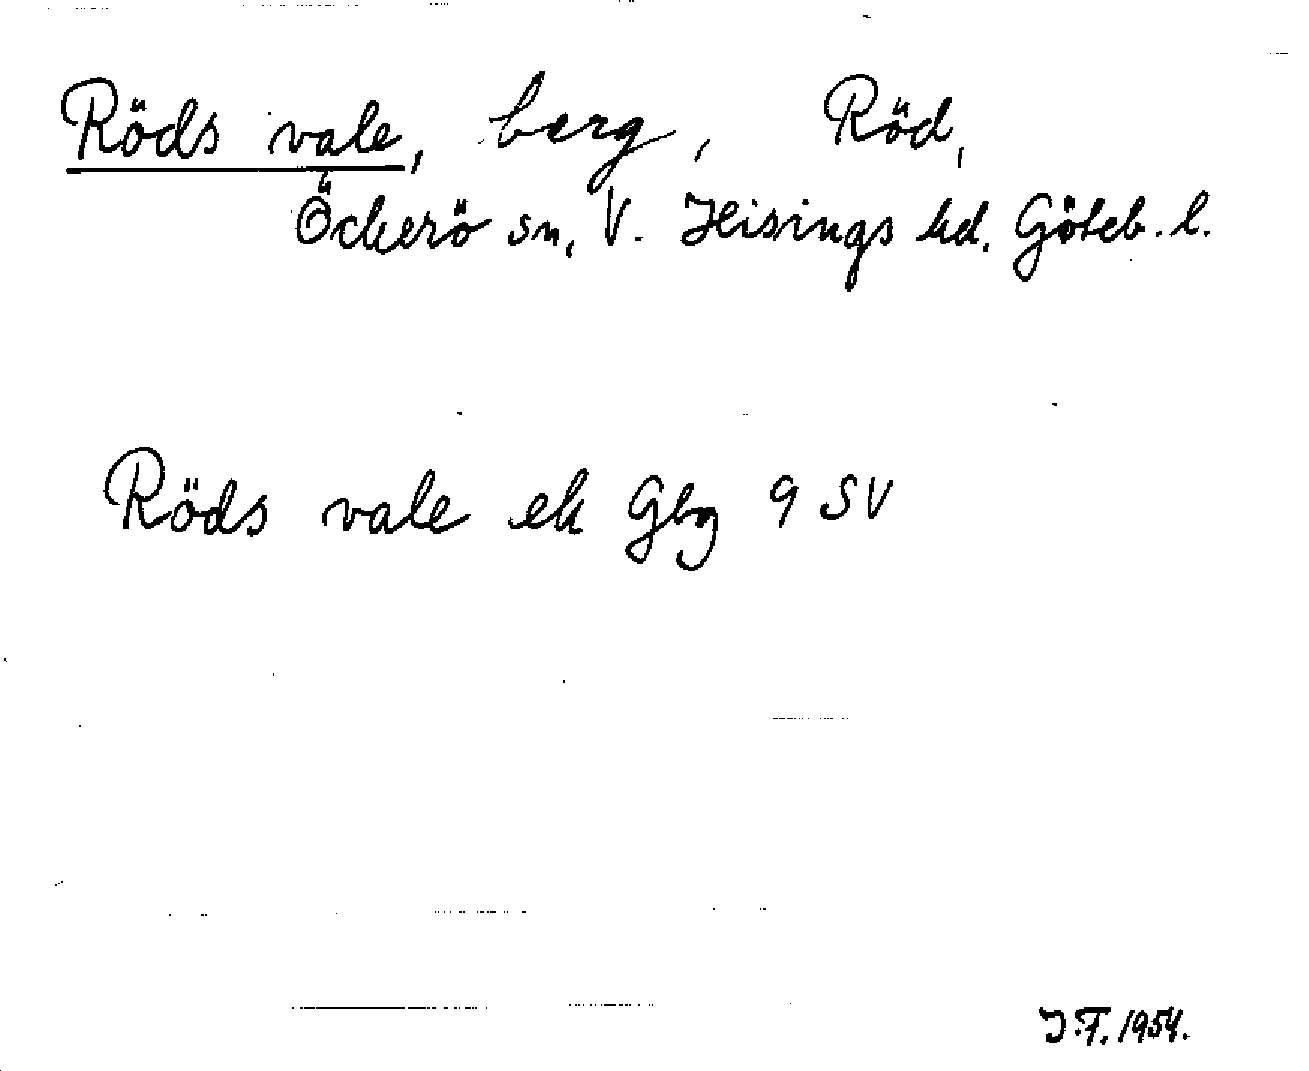 Röds vale, berg, Röd,
Öckerö sn, V. Hisings hd. Göteb. l.
Röds vale ek Gbg 9 SV
J.F. 1954.